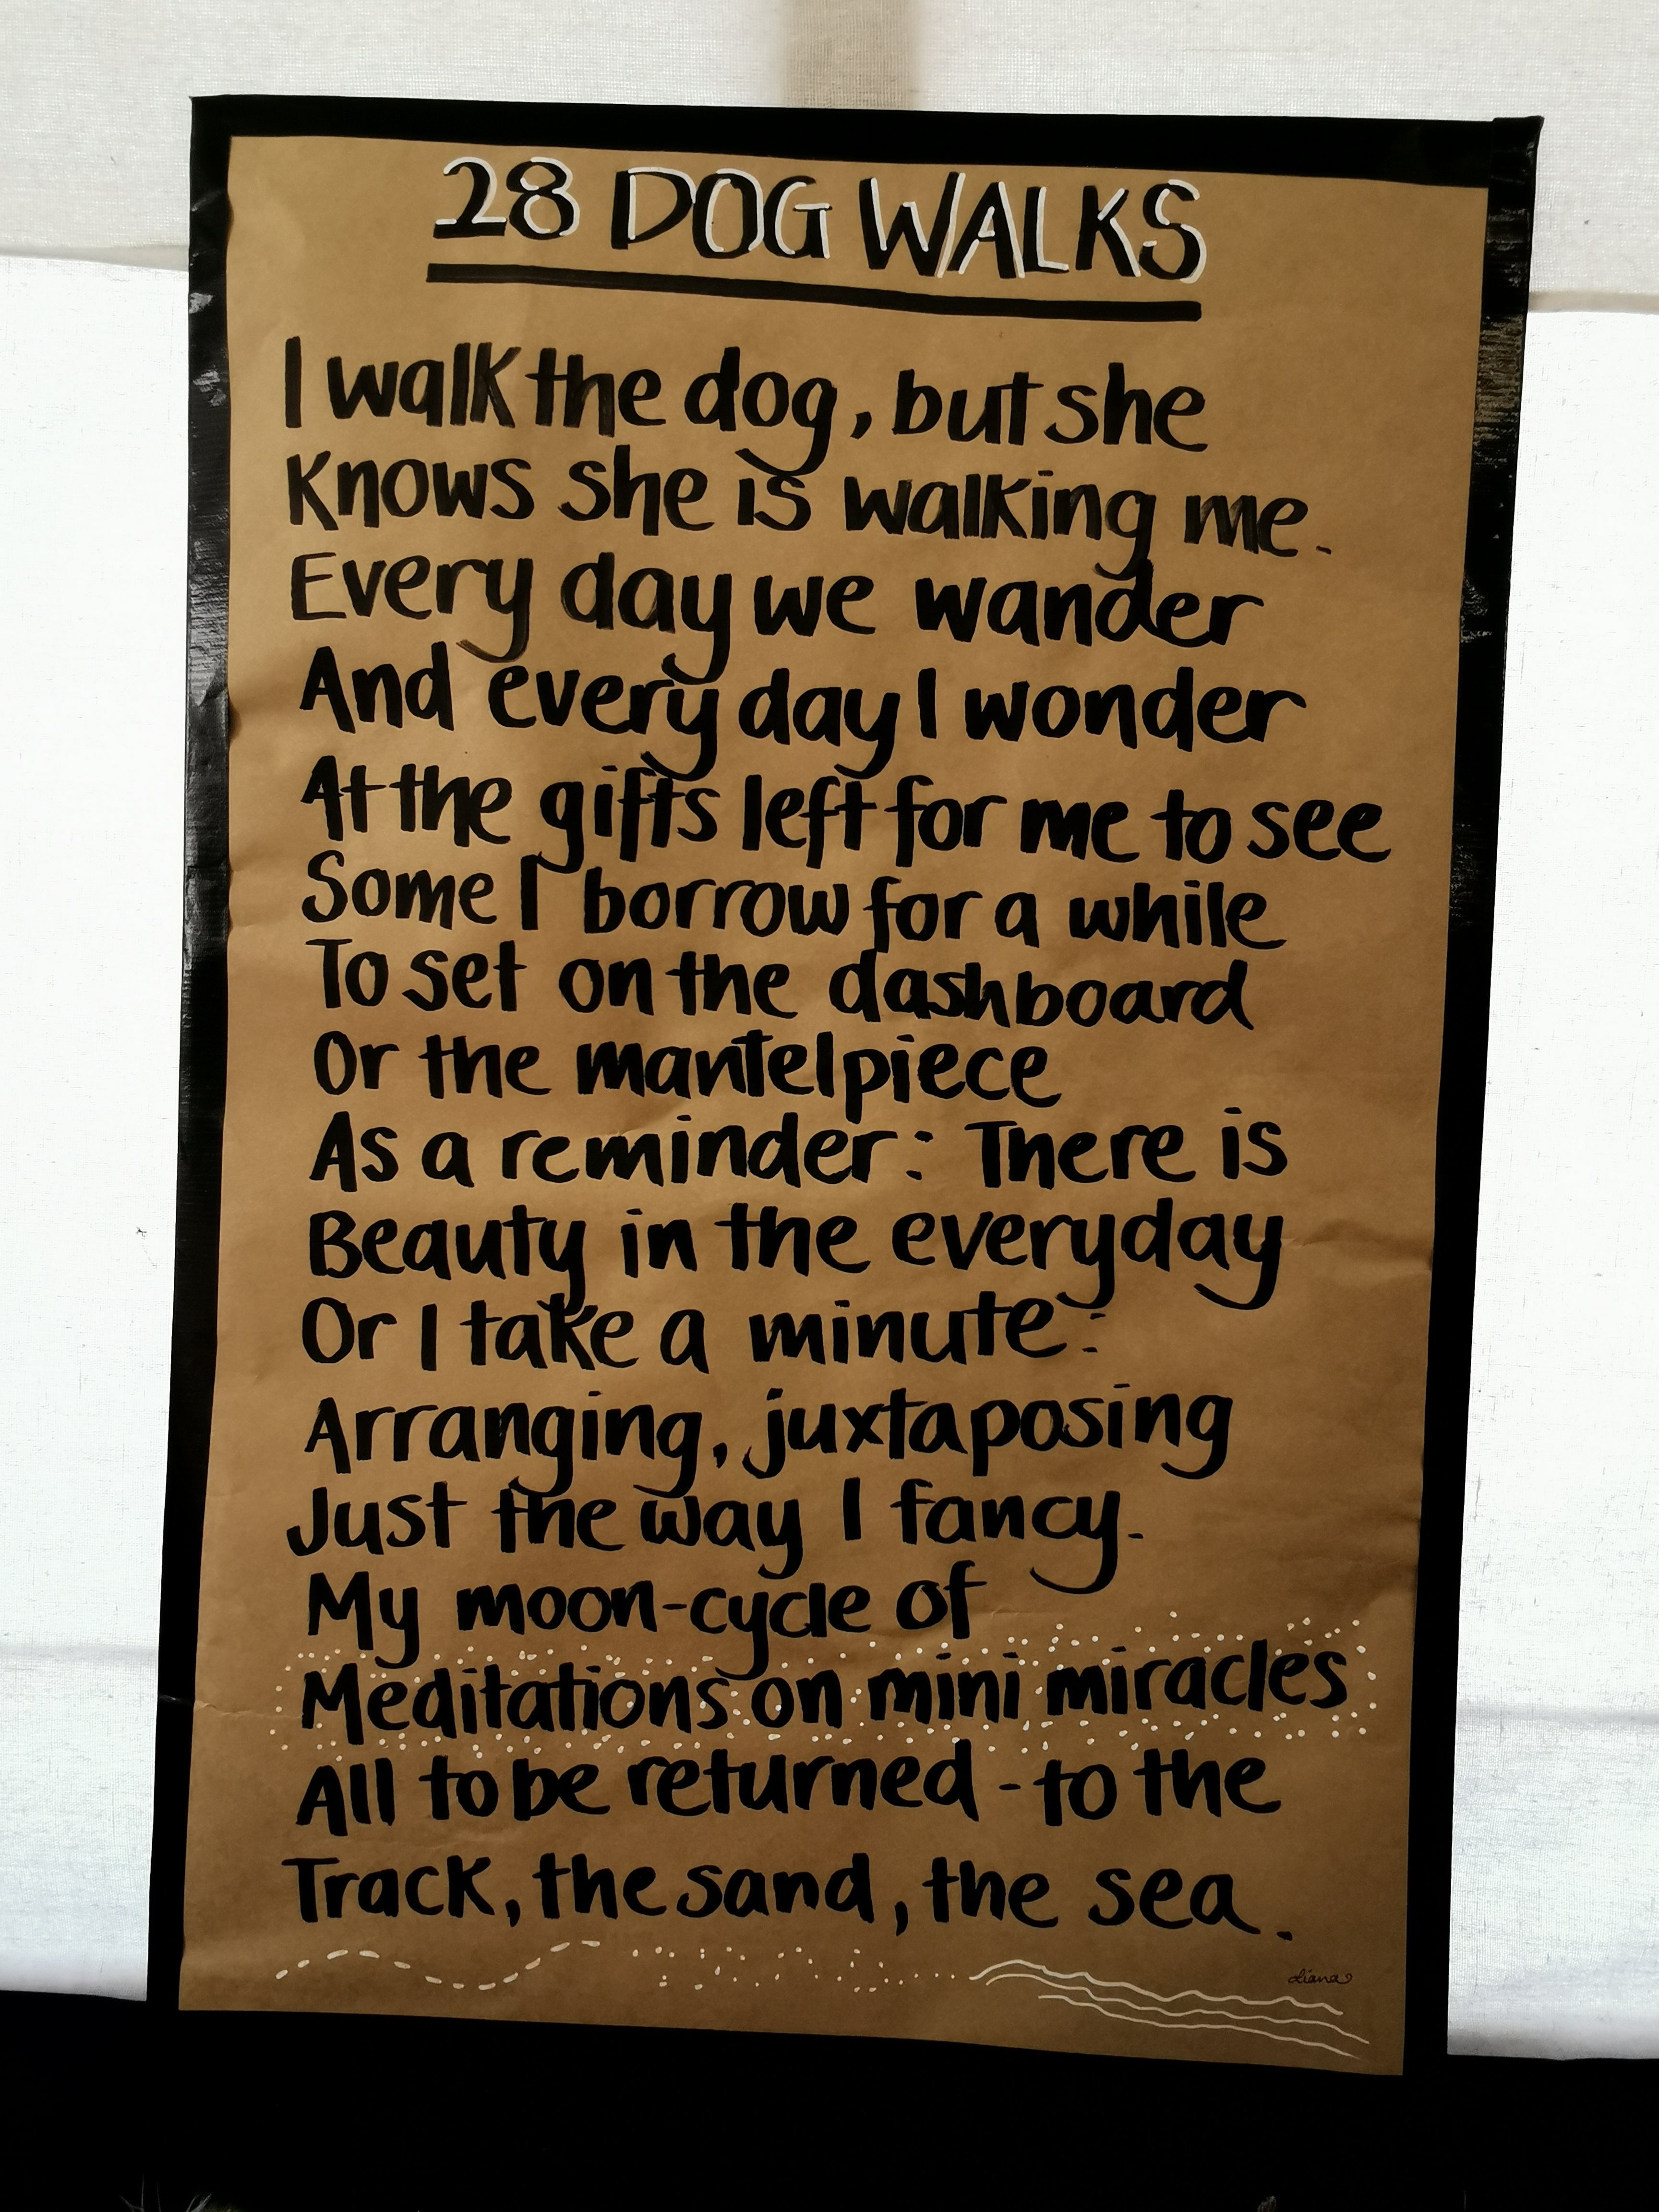 28 DOG WALKS
I walk the dog, but she
Knows she is walking me.
Every day we wander
And every day I wonder
At the gifts left for me to see
Some I borrow for a while
To set on the dashboard
Or the mantelpiece
As a reminder: There is
Beauty in the everyday
Or I take a minute:
Arranging, juxtaposing
Just the way I fancy.
My moon-cycle of
Meditations on mini miracles
All to be returned - to the
Track, the sand, the sea.
diana